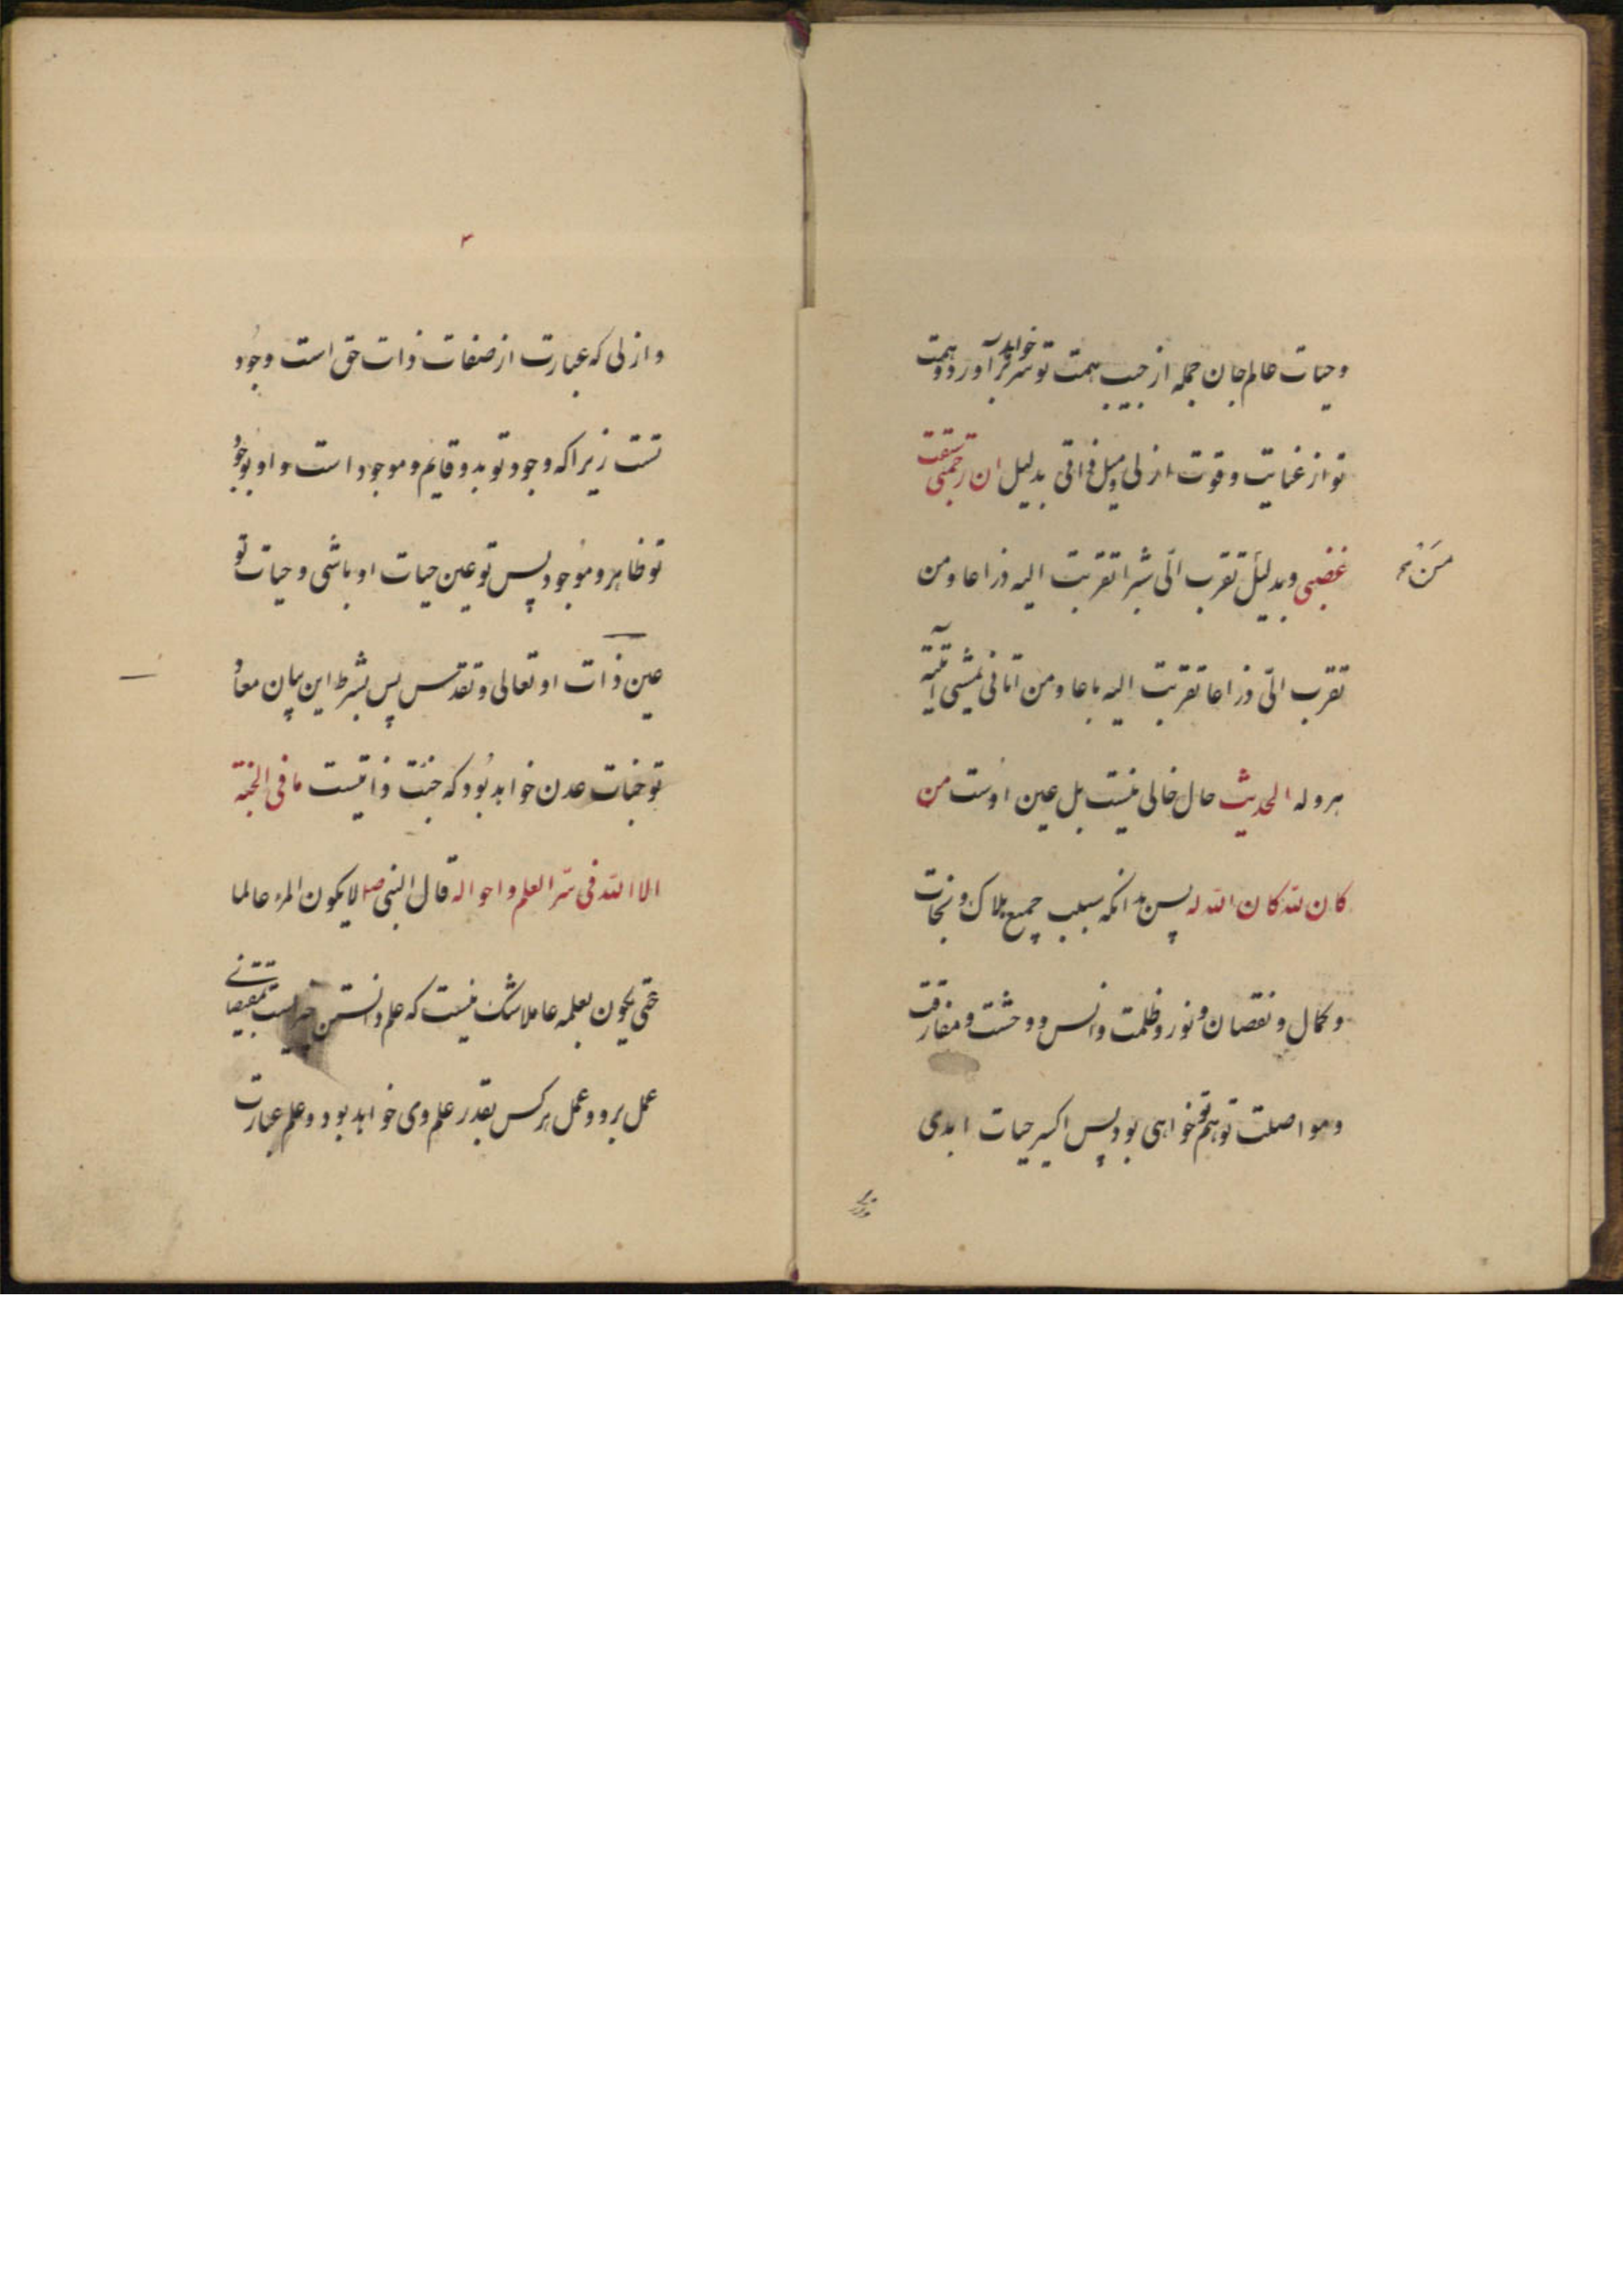 وحیات عالم جان جمله از جیب همت تو سر فرا خواهد آورد وهمت
تو از عنایت وقوت ازلی ومیل ذاتی بدلیل ان رحمتی سبقت
غضبی وبدلیل تقرب الیّ شبرا تقربت الیه ذراعا ومن
مَنْ
تقرب الیّ ذراعا تقربت الیه باعا ومن اتانی یمشی آتیته
هروله الحدیث حال خالی نیست بل عین اوست من
کان لله کان الله له پس بدانکه سبب جمیع هلاک ونجات
وکمال ونقصان ونور وظلمت وانس ووحشت ومفارقت
ومواصلت توهم تو خواهی بود پس اکسیر حیات ابدی
۳
وازلی که عبارت از صفات ذات حق است وجود
تست زیراکه وجود تو بدو قایم وموجود است واو بوجود
تو ظاهر وموجود پس تو عین حیات او باشی وحیات تو
عین ذات او تعالی وتقدس پس بشرط این بیان معاد
تو جنات عدن خواهد بود که جنت ذاتیست ما فی الجنة
الا الله فی سرّ العلم واحواله قال النبی صلا لا یکون المرء عالما
حتی یکون بعلمه عاملا شک نیست که علم دانستن است
عمل برو وعمل هرکس بقدر علم وی خواهد بود وعلم عبارت